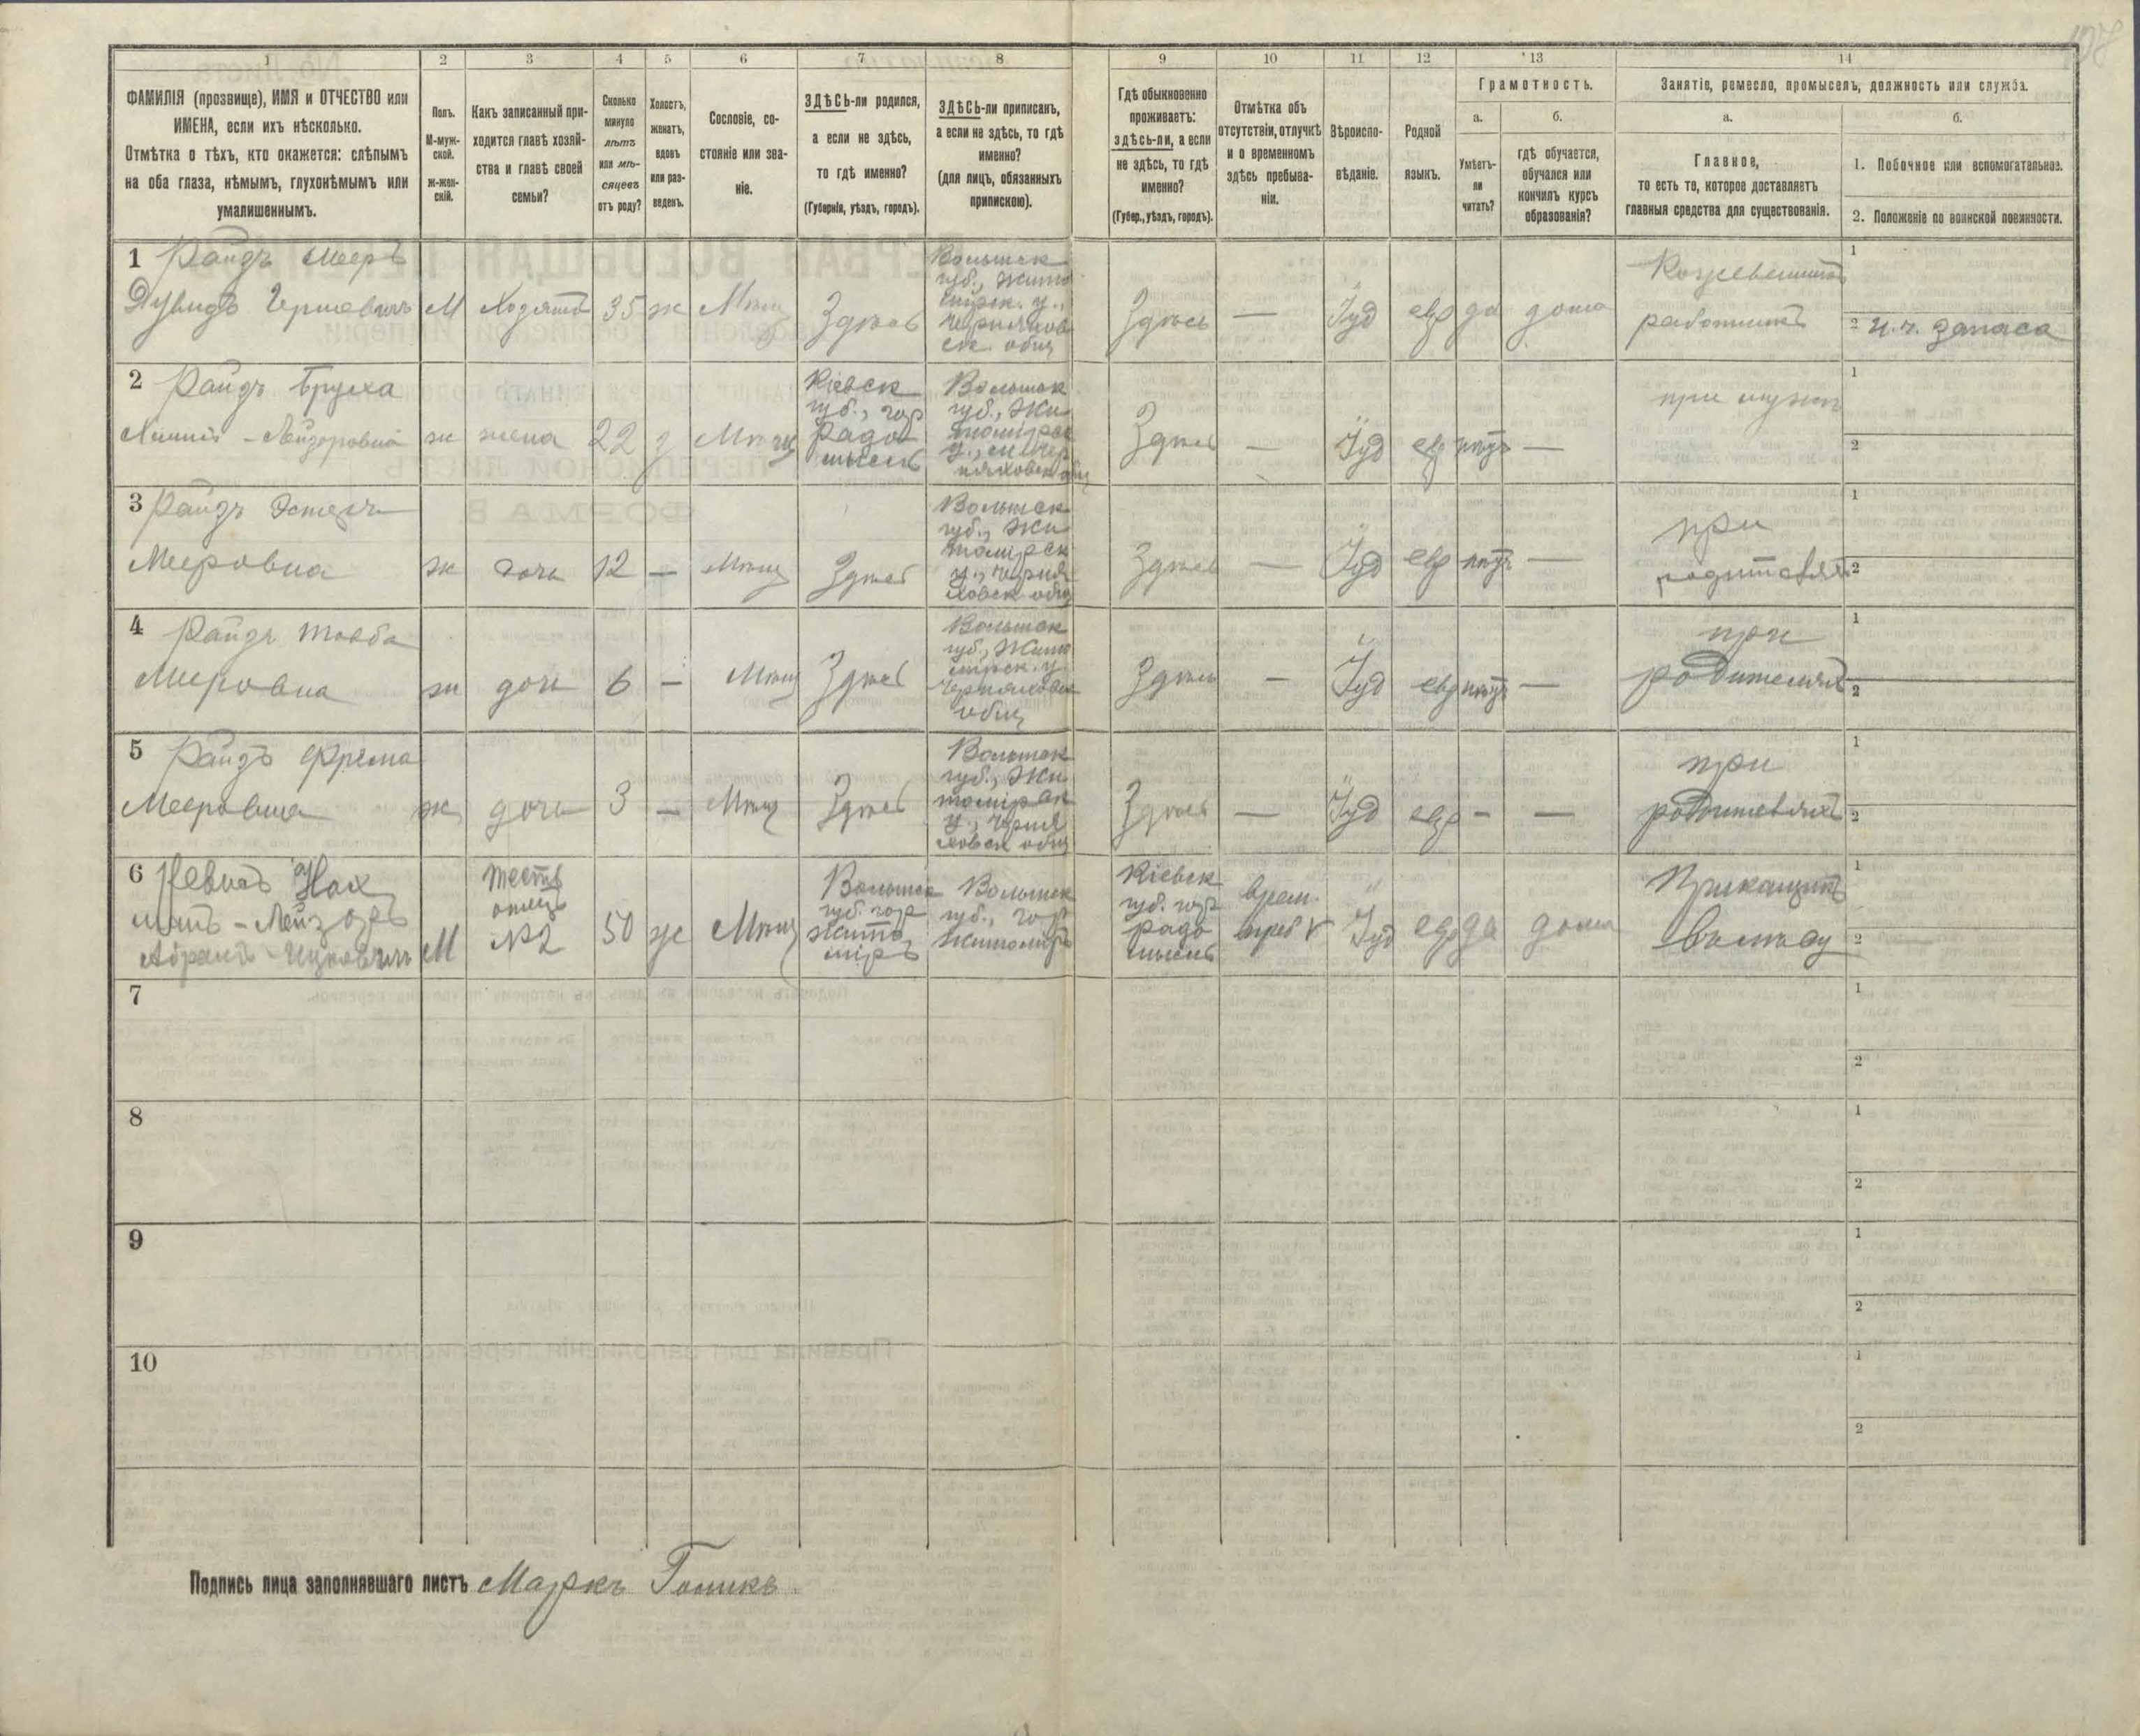 107
1
2
3
4
5
6
7
8
9
10
11
12
13
14
ФАМИЛІЯ (прозвище), ИМЯ и ОТЧЕСТВО или
ИМЕНА, если ихъ нѣсколько.
Отмѣтка о тѣхъ, кто окажется: слѣпымъ
на оба глаза, нѣмымъ, глухонѣмымъ или
умалишеннымъ.
Полъ.
М-муж-
ской.
ж-жен-
скій.
Какъ записанный при-
ходится главѣ хозяй-
ства и главѣ своей
семьи?
Сколько
минуло
лѣтъ
или мѣ-
сяцевъ
отъ роду?
Холостъ,
женатъ,
вдовъ
или раз-
веденъ.
Сословіе, со-
стояніе или зва-
ніе.
ЗДѢСЬ-ли родился,
а если не здѣсь,
то гдѣ именно?
(Губернія, уѣздъ, городъ).
ЗДѢСЬ-ли приписанъ,
а если не здѣсь, то гдѣ
именно?
(для лицъ, обязанныхъ
припискою).
Гдѣ обыкновенно
проживаетъ:
здѣсь-ли, а если
не здѣсь, то гдѣ
именно?
(Губер., уѣздъ, городъ).
Отмѣтка объ
отсутствіи, отлучкѣ
и о временномъ
здѣсь пребыва-
ніи.
Вѣроиспо-
вѣданіе.
Родной
языкъ.
Грамотность.
а.
Умѣетъ-
ли
читать?
б.
гдѣ обучается,
обучался или
кончилъ курсъ
образованія?
Занятіе, ремесло, промыселъ, должность или служба.
а.
Главное,
то есть то, которое доставляетъ
главныя средства для существованія.
б.
1. Побочное или вспомогательное.
2. Положеніе по воинской повинности.
1 Райдъ Мееръ
Дувидъ М 35 ж Мѣщ Здѣсь
Волынск
губ., Жито
мірск. у.,
Черняхов
ск. общ
Здѣсь — Іуд евр да дома
Кожевенный
работникъ
1
2 и. ч. запаса
2 Райдъ Бруха
ж жена 22 з Мѣщ
Кіевск
губ., гор
Радо
мысль
Волынск
губ., Жи
томірск
Здѣсь — Іуд евр нѣтъ —
при мужѣ
1
2
3 Райдъ Эстеръ
Мееровна ж дочь 12 — Мѣщ Здѣсь
Волынск
губ., Жи
томірск
у., Черня
ховск общ
Здѣсь — Іуд евр нѣтъ —
при
родителяхъ
1
2
4 Райдъ Товба
Мееровна ж дочь 6 — Мѣщ Здѣсь
Волынск
губ., Жито
мірск. у.
Черняховск
общ
Здѣсь — Іуд евр нѣтъ —
при
родителяхъ
1
2
5 Райдъ Фрема
Мееровна ж дочь 3 — Мѣщ Здѣсь
Волынск
губ., Жи
томірск
у., Черня
ховск общ
Здѣсь — Іуд евр — —
при
родителяхъ
1
2
6
Абрамъ-Ицковичъ М
тесть
отецъ
№2
50 ж Мѣщ
Волынск
губ. гор
Жито
міръ
Волынск
губ., гор
Житомиръ
Кіевск
губ. гор
Радо
мысль
врем.
преб V
Іуд евр да дома
Прикащикъ
въ лѣсу
1
2
7
1
2
8
1
2
9
1
2
10
1
2
Подпись лица заполнявшаго листъ Маркъ